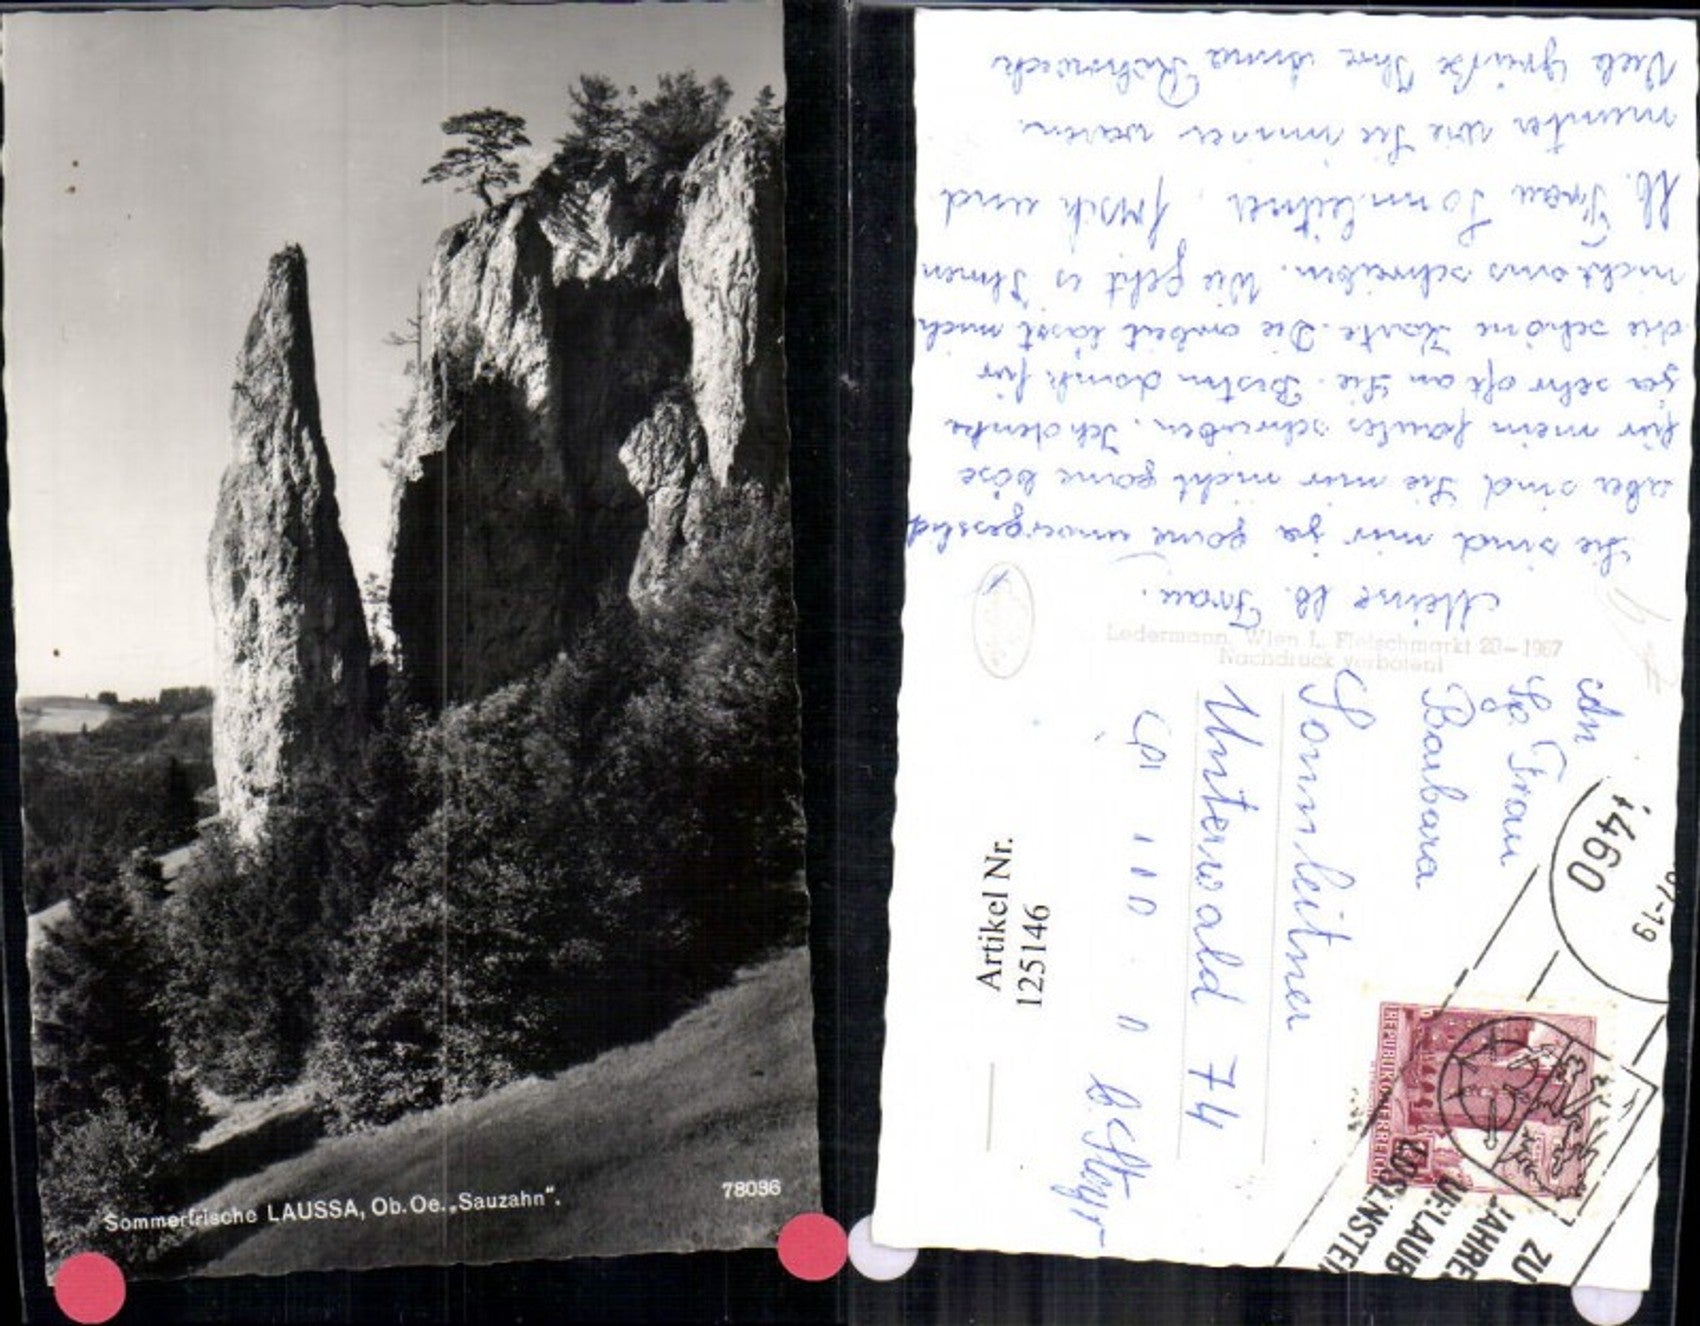 Sommerfrische LAUSSA, Ob. Oe. „Sauzahn“.
78036
Meine lb. Frau.
Sie sind mir ja garne unvergesslich
aber sind Sie mir nicht garne böse
für mein faules schreiben. Ich denke
ja sehr oft an Sie. Besten dank für
die schöne Karte. Die arbeit lässt mich
nicht ans schreiben. Wie geht es Ihnen
lb. Frau Sonnleitner, frisch und
munter wie Sie immer waren.
Viele Grüße Ihre Anna
Ledermann, Wien I., Fleischmarkt 20 – 1967
Nachdruck verboten!
An
Frau
Barbara
Sonnleitner
Unterwald 74
Artikel Nr.
125146
4460
-19
REPUBLIK ÖSTERREICH
ZU
JAHRE
URLAUB